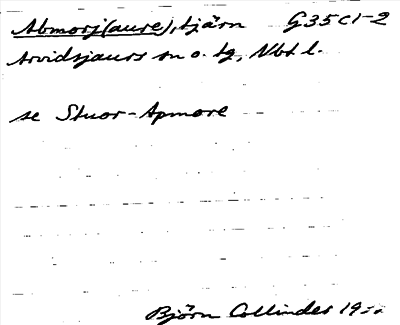 Abmorj(aure), tjärn G35c1-2
Arvidsjaurs sn o. tg, Vbt l.
se Stuor-Apmore
Björn Collinder 19